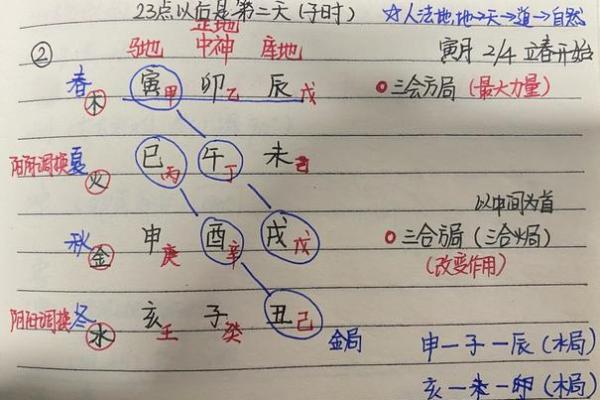 23点以后是第二天(子时) ☆人法地,地→天→道→自然
正地
② 马地 中神 库地 寅月 2/4 立春开始
春木 寅甲 卯乙 辰戊 三会方局(最大力量)
阴阳调换夏火 巳丙 午丁 未己
以中间为首
秋金 申庚 酉辛 戌戊 三合方局(三合火局)
(改变作用)
阴阳调换冬水 亥壬 子癸 丑己
金局 申一子一辰(水局)
亥一未一卯(木局)